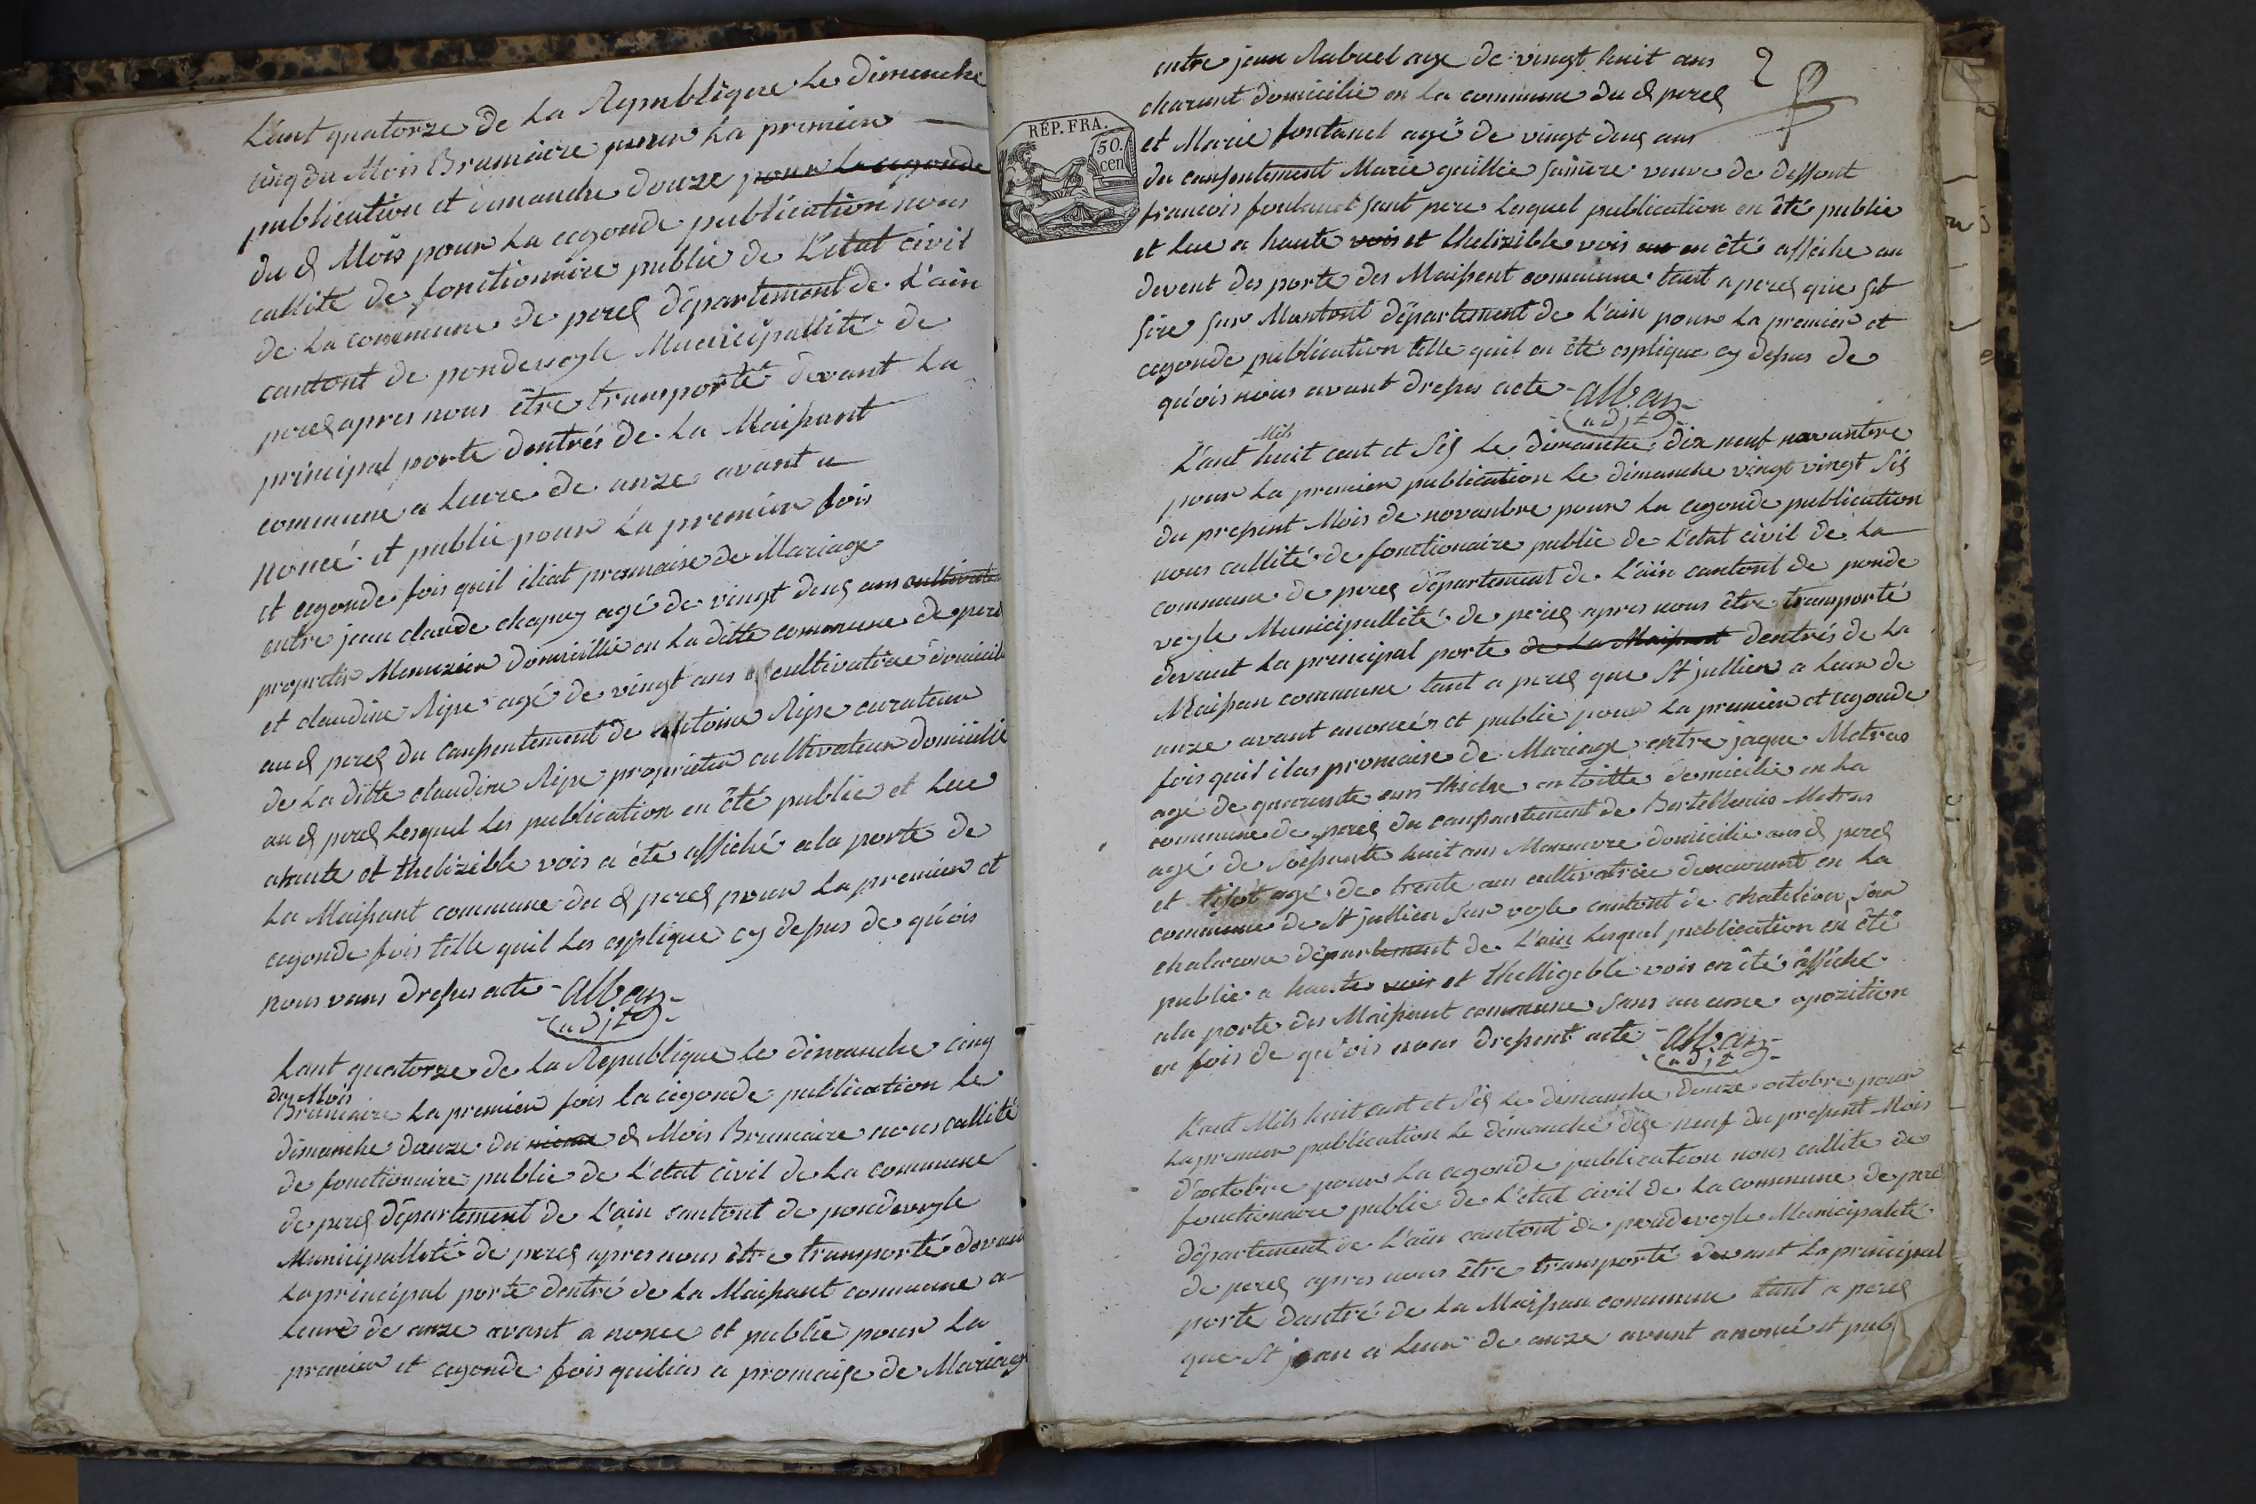 L'ant quatorze de La Republique Le dimanche
cinq du Mois Brumaire pour La premiere
publication et dimanche douze pour La cegonde
du d Mois pour La cegonde publication nous
callité de fonctionnaire public de L'etat civil
de La commune de perex département de L'ain
cantont de pondeveyle Municipallité de
perex apres nous être transporté devant La
principal porte dentrés de La Maisant
commune a Leure de onze avant a
noncé et publie pour La premier fois
et cegonde fois quil iliat promaise de Mariage
entre jean claude chapuy agé de vingt deux ans cultivateur
propretir Menuzier domicillie en La ditte commune de perex
et claudine Ripe agé de vingt ans cultivatrice domicile
au d perex du consentement de antoine Ripe curateur
de La ditte claudine Ripe proprieter cultivateur domicilié
au d perex Lesquel Les publication en été public et Lue
ahaute et thelizible vois a été affiché ala porte de
La Maisant commune du d perex pour La premier et
cegonde fois telle quil Les explique cy desus de qu'ois
nous vans dresus acte - alban
adjt
Lant quatorze de La Republique Le dimanche cinq
du Mois
Brumaire La premier fois la cegonde publication Le
dimanche douze du d Mois Brumaire nous callité
de fonctionaire public de L'etat civil de La commune
de perex département de L'ain cantont de pondeveyle
Municipallité de perex apres nous être transporté devant
La principal porte dentré de La Maisant commune a
Leure de onze avant a nonce et publie pour La
premier et cegonde fois quilias a promaise de Mariage
2
RÉP. FRA.
50.
cen
entre jean Rabuel age de vingt huit ans
charant domicilié en La commune du d perex
et Marie fontanel agé de vingt deux ans
du consentement Marie guillie samere veuve de deffont
francois fontanel sant pere Lesquel publication en été publie
et Lue a haute vois et thelizible vois en été affiche au
devent des porte des Maisent commune tant a perex que st
sire sur Mantont département de L'ain pour La premier et
cegonde publication telle quil en été esplique cy desus de
qu'ois nous avant dresus acte - alban
adjt
Mils
L'ant huit cent et Six Le dimanche dix neuf novanbre
pour La premier publication Le dimanche vingt vingt Six
du present Mois de novanbre pour La cegonde publication
nous callité de fonctionaire public de L'etat civil de La
commune de perex département de L'ain cantont de ponde
veyle Municipallité de perex apres nous être transporté
devant La principal porte de La Maisant dentrés de La
Maisan commune tant a perex que St jullien a Leur de
onze avant anoncés et publie pour La premier et cegonde
fois quil ilas promaise de Mariage entre jaque Metras
agé de quarante ans thiche en toille domicilié en La
commune de perex du consentement de Bertelemis Metras
agé de Soesante huit ans Maneuvre domicilié au d perex
et tisot agé de trente ans cultivatrice demeurant en La
commune de St jullien sur veyle cantont de chatelion sur
chalarone département de L'ain Lesquel publication en été
publie a haute vois et thelligeble vois en été affiche
ala porte des Maisant commune sans aucune opozition
en fois de qu'ois nous dresent acte - alban
adjt
L'ant Mils huit cent et Six Le dimanche douze octobre pour
La premier publication Le dimanche dix neuf du present Mois
d'octobre pour La cegonde publication nous callité de
fonctionaire public de L'etat civil de La commune de perex
département de L'ain cantont de pondeveyle Municipalité
de perex apres nous être transporté devant La principal
porte dantré de La Maisan commune tant a perex
que St jean a Leur de onze avant anoncé et pub